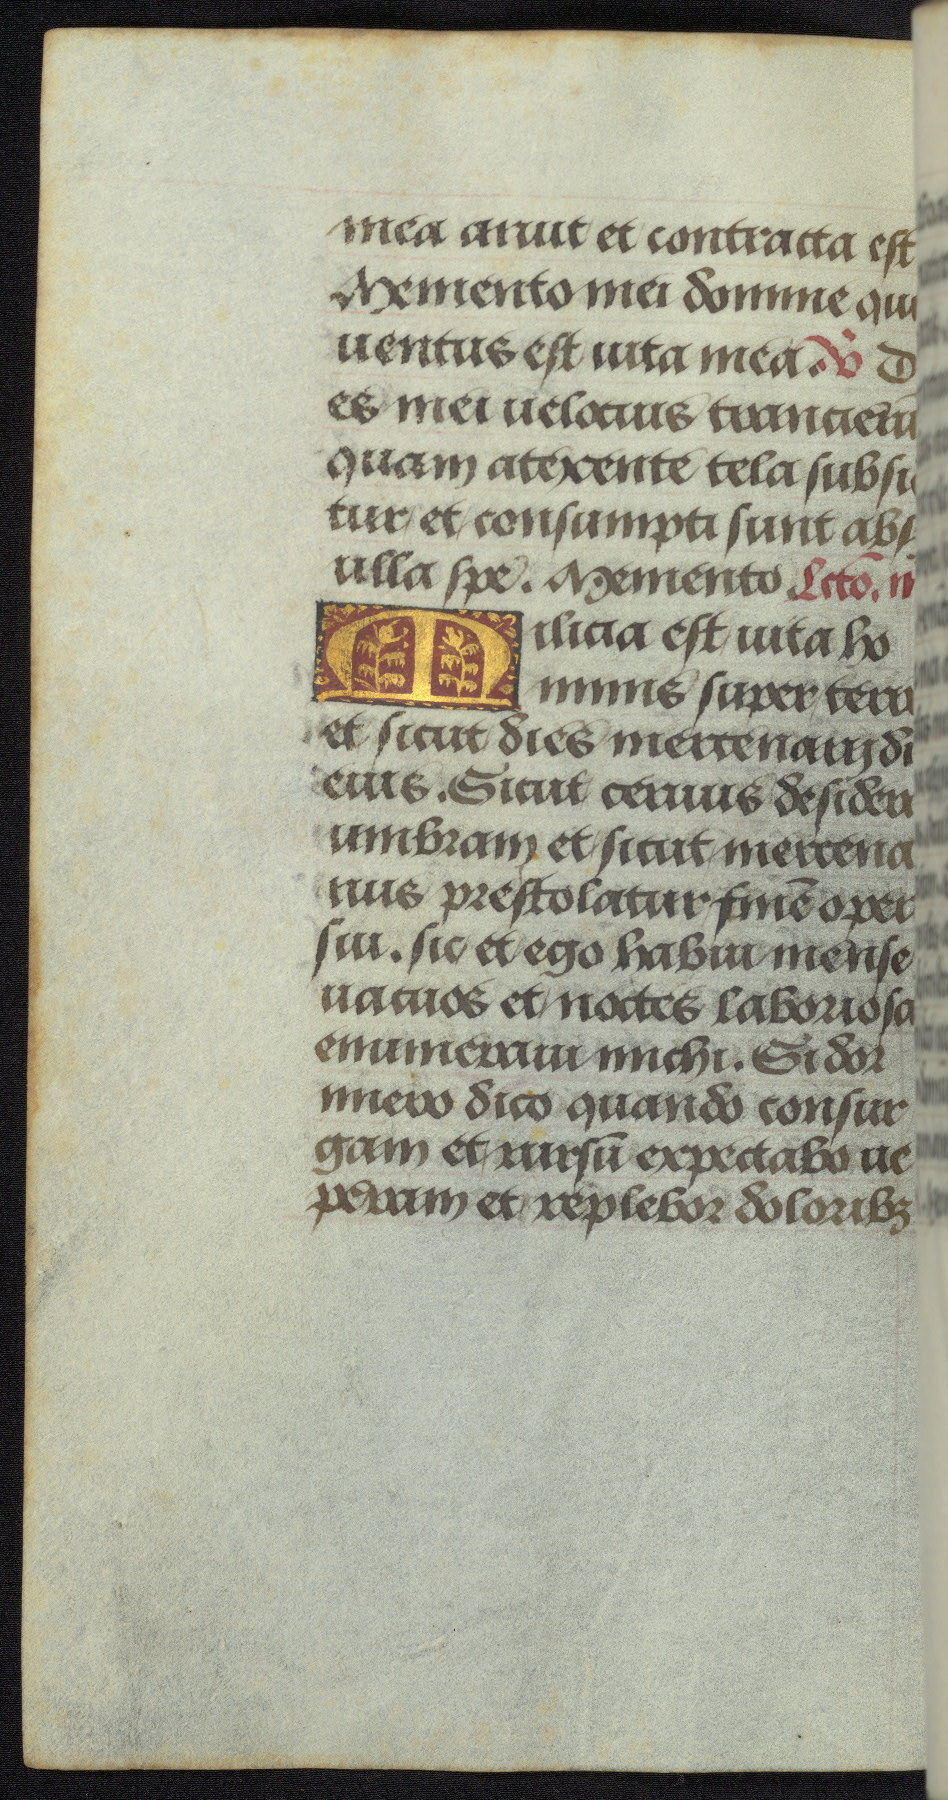 mea aruit et contracta est
Memento mei domine qui
uentus est uita mea. V D
es mei uelocius transierū
quam atexente tela subsi
tur et consumpti sunt abs
ulla spe. Memento Lctō.
Milicia est uita ho
minis super terr
et sicut dies mercenarij di
eius. Sicut ceruus desider
umbram et sicut mercena
rius prestolatur finē oper
sui. sic et ego habui mense
uacuos et noctes laboriosa
enumeraui michi. Si dor
miero dico quando consur
gam et rursū expectabo ue
peram et replebor doloribꝫ